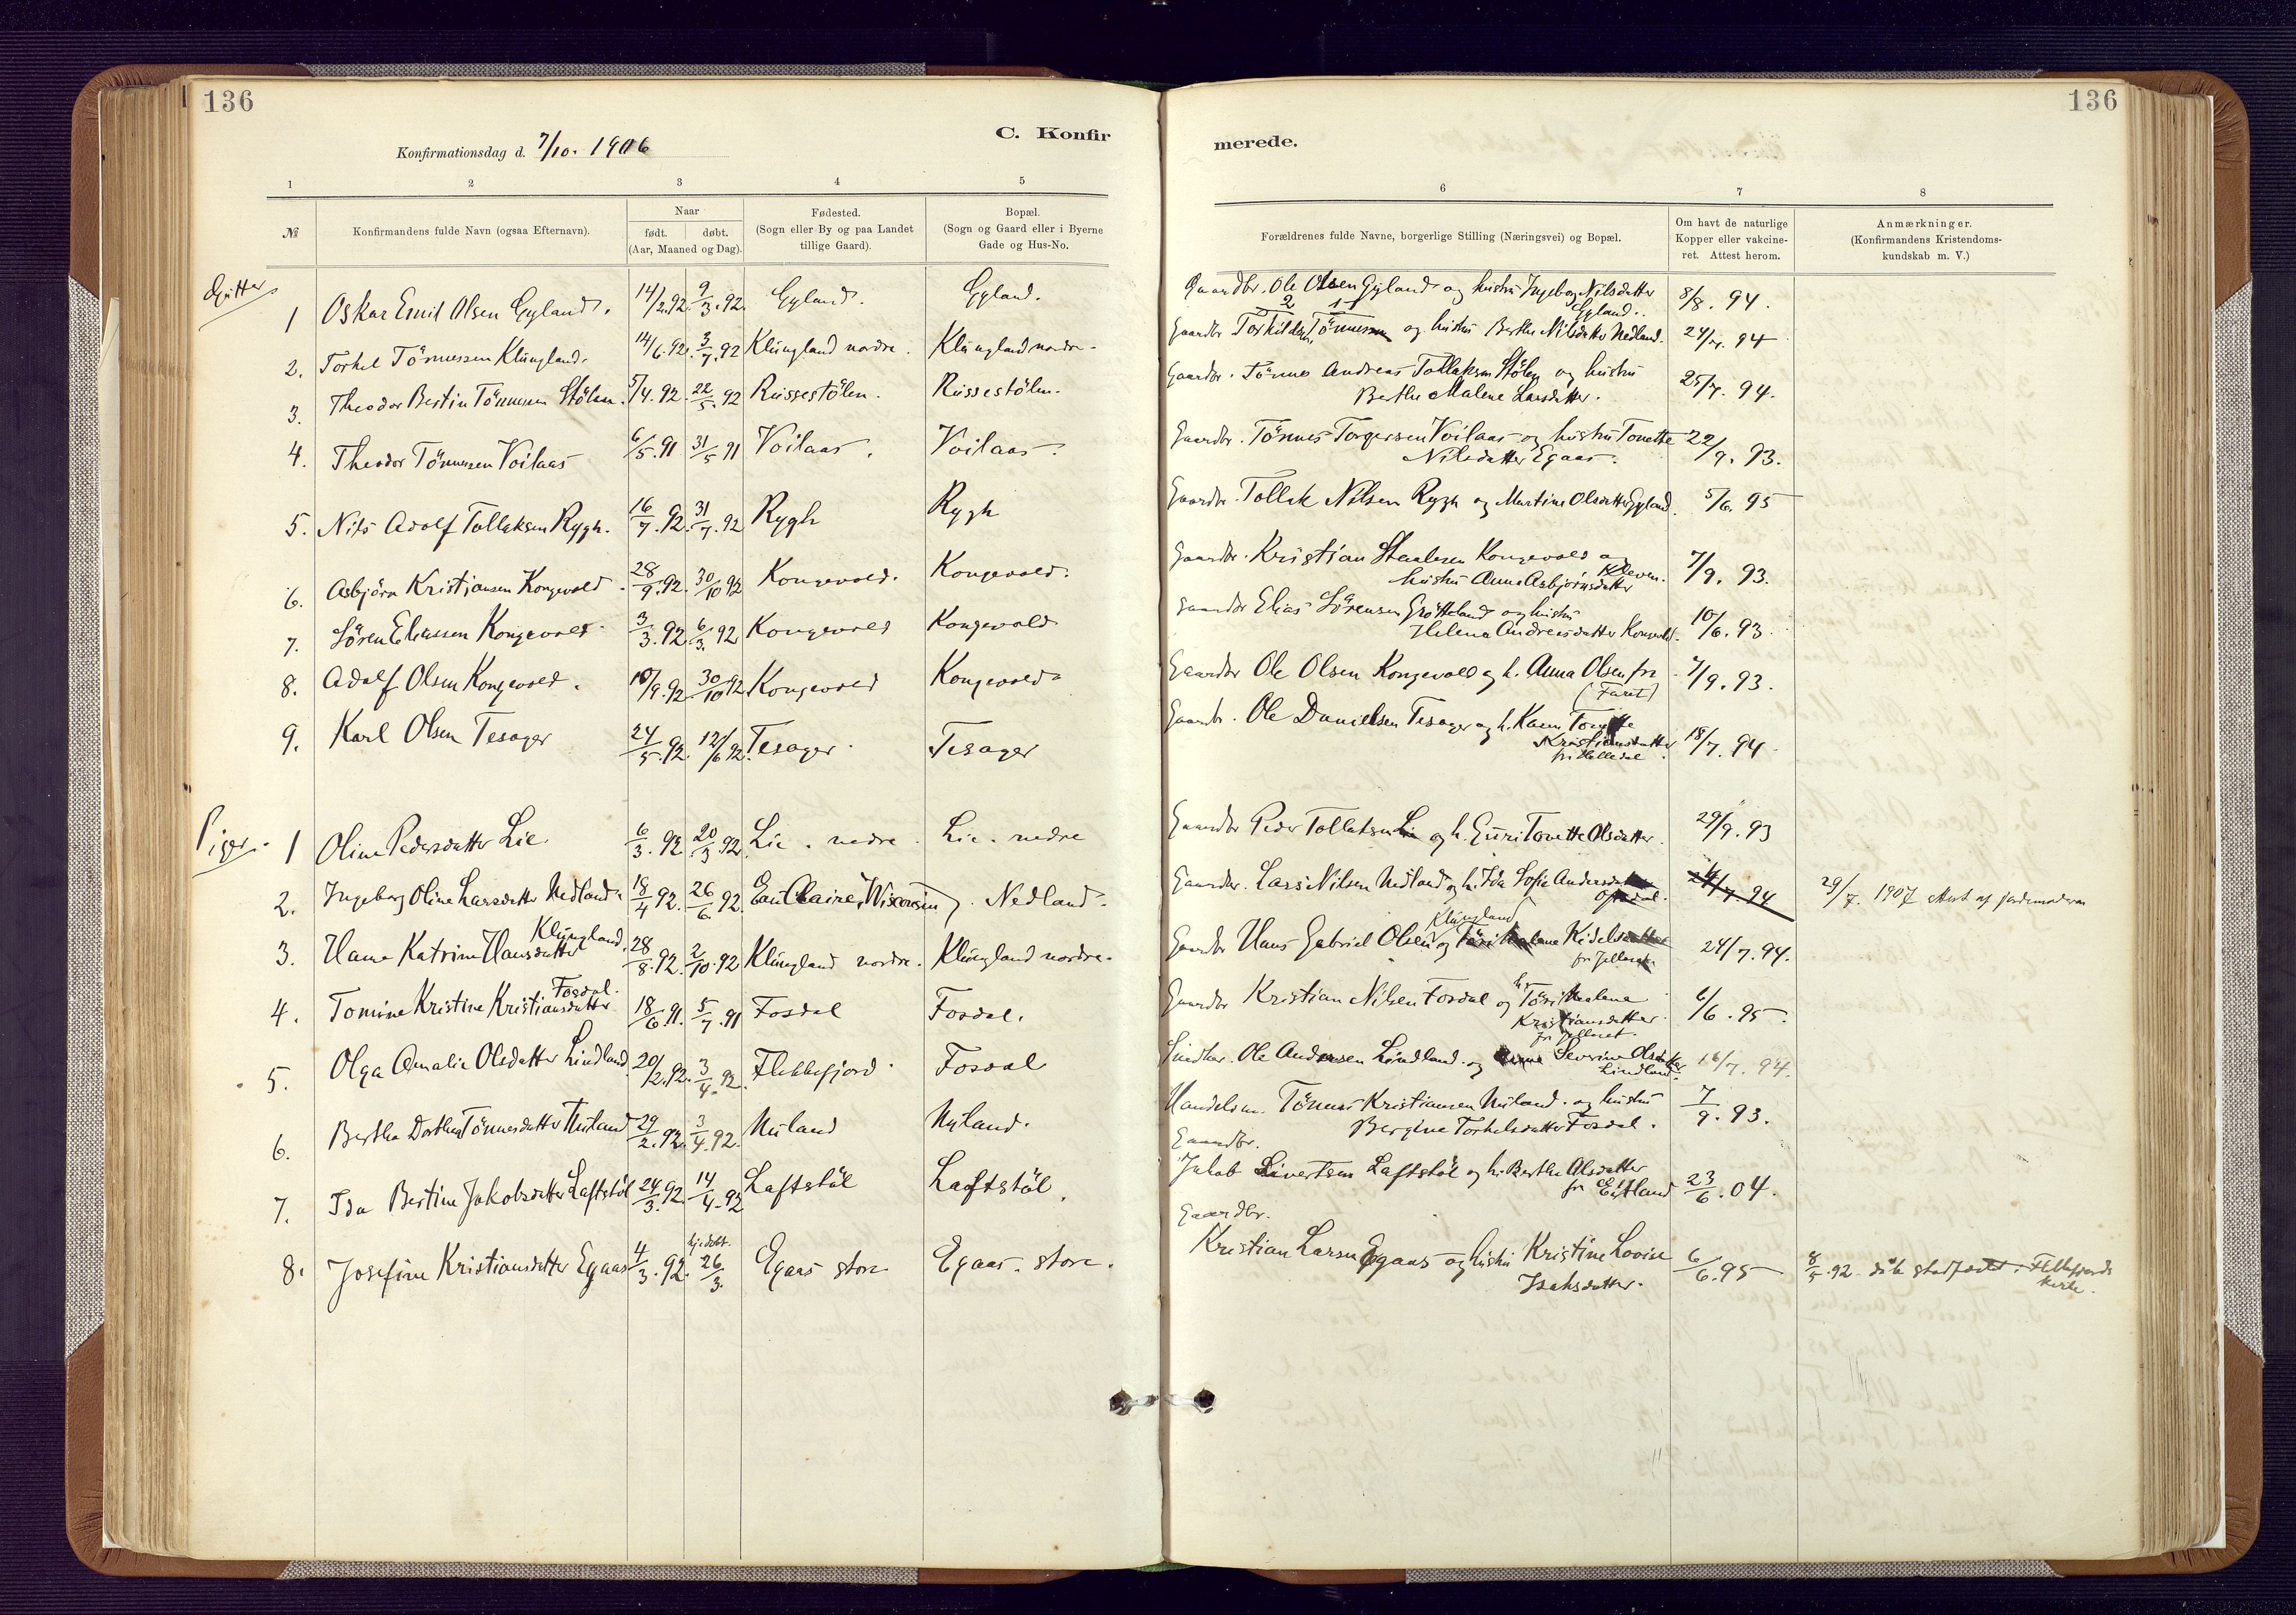 136
C. Konfir
Konfirmationsdag d. 7/10. 1906
1 2 3 4 5
№
Konfirmandens fulde Navn (ogsaa Efternavn).
Naar
født. døbt.
(Aar, Maaned og Dag).
Fødested.
(Sogn eller By og paa Landet
tillige Gaard).
Bopæl.
(Sogn og Gaard eller i Byerne
Gade og Hus-No.
Gutter
1 Oskar Emil Olsen Gyland. 14/2.92. 9/3.92. Gyland. Gyland.
2. Torkel Tönnessen Klungland. 14/6.92. 3/7.92 Klungland nordre. Klungland nordre.
3. Theodor Bertin Tönnessen Stölen. 5/4.92. 22/5.92 Russestölen. Russestölen.
4. Theodor Tönnessen Voilaas 6/5.91 31/5 91 Voilaas. Voilaas.
5. Nils Adolf Tollaksen Rygh. 16/7.92. 31/7.92 Rygh Rygh
6. Asbjörn Kristjansen Kongevold. 28/9.92. 30/10 92 Kongevold. Kongevold.
7. Sören Eliassen Kongevold. 3/3.92 6/3.92 Kongevold Kongevold
8. Adolf Olsen Kongevold. 10/9.92. 30/10 92 Kongevold Kongevold
9. Karl Olsen Tesager 24/5.92. 12/6 92 Tesager. Tesager
Piger.
1 Oline Pedersdatter Lie. 6/3.92 20/3.92 Lie. nedre. Lie. nedre
2. Ingeborg Oline Larsdatter Nedland. 18/4 92. 26/6.92 Eau Claire, Wisconsin. Nedland.
Klungland.
3. Hanna Katrine Hansdatter 28/8.92. 2/10.92 Klungland nordre. Klungland nordre.
Fosdal.
4. Tomine Kristine Kristiansdatter 18/6.91. 5/7.91 Fosdal Fosdal.
5. Olga Amalie Olsdatter Lindland. 20/2.92. 3/4.92. Flekkefjord. Fosdal
6. Bertha Dorthea Tönnesdatter Nuland 29/2.92. 3/4.92. Nuland Nuland.
7. Ida Bertine Jakobsdatter Laftstöl 24/3.92. 14/4.92 Laftstöl Laftstöl.
hj.döbt.
8. Josefine Kristiansdatter Egaas 4/3.92. 26/3. Egaas store Egaas. store.
136
merede.
6 7 8
Forældrenes fulde Navne, borgerlige Stilling (Næringsvei) og Bopæl.
Om havt de naturlige
Kopper eller vakcine-
ret. Attest herom.
Anmærkninger.
(Konfirmandens Kristendoms-
kundskab m. V.)
Gaardbr. Ole Olsen Gyland og hustru Ingeborg Nilsdatter 8/8. 94.
Gyland.
2 1
Gaardbr Torkildsen, Tönnes og hustru Berthe Nilsdatter Nedland. 24/7. 94
Gaardbr. Tönnes Andreas Tollaksen Stölen og hustru
Berthe Malene Larsdatter. 25/7. 94.
Gaardbr. Tönnes Torgersen Voilaas og hustru Tonette 22/9. 93.
Nilsdatter Egaas.
Gaardbr. Tollak Nilsen Rygh og Martine Olsdatter Gyland. 5/6. 95
Gaardbr. Kristian Staalesen Kongevold og 7/9. 93.
hustru Anna Asbjörnsdatter Kleven.
Gaardbr Elias Sörensen Grötteland og hustru
Helene Andreasdatter Kongevold. 10/6. 93.
Gaardbr Ole Olsen Kongevold og h. Anna Olsen fra 7/9. 93.
(Faret)
Gaardbr. Ole Danielsen Tesager og h. Karen Tonette
Kristiansdatter 18/7. 94.
fra Helledal.
Gaardbr Peder Tollaksen Lie og h. Guri Tonette Olsdatter. 29/9. 93
Gaardbr. Lars Nilsen Nedland og h. Ida Sofie Andersdatter 24/7. 94 29/7. 1907 Attest af jordemoderen
Klungland
Gaardbr Hans Gabriel Olsen og Kidelsdatter 24/7. 94.
Gaardbr Kristian Nilsen Fosdal og h. Töri Malene 6/6. 95.
Kristiansdatter
fr Jelleret.
Ole Andersen Lindland. og Severine Olsdatter 16/7. 94.
Lindland.
Handelsm. Tönnes Kristiansen Nuland. og hustru 7/9. 93.
Bergine Torkelsdatter Fosdal.
Gaardbr.
Jakob Sivertsen Laftstöl og h. Berthe Olsdatter
fr Eitland 23/6. 04.
Gaardbr.
Kristian Larsen Egaas og hustru Kristine Lovise 6/6. 95 8/5. 92. daab stadfæstet i Flekkefjords
Isaksdatter. kirke.